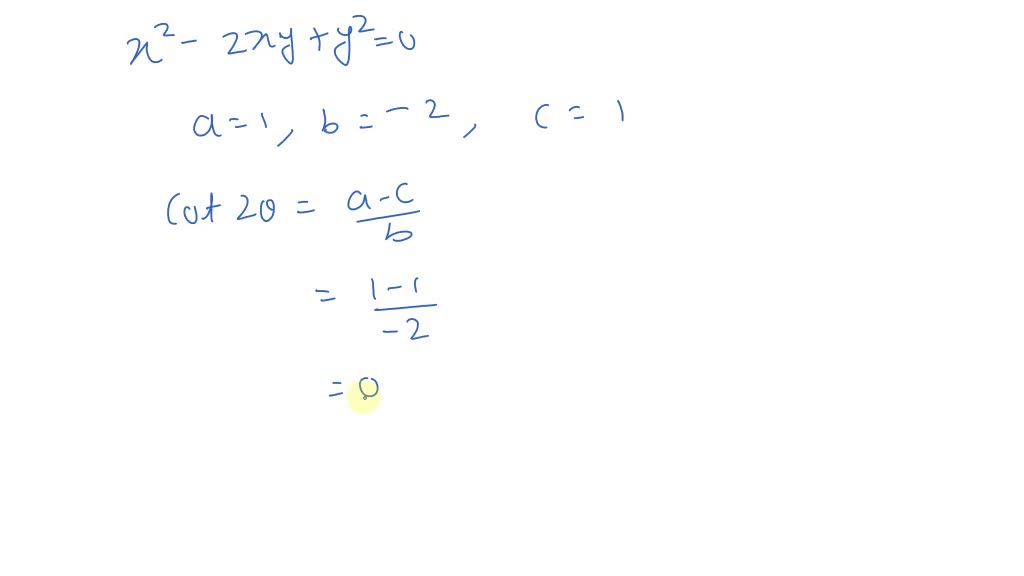 x² - 2xy + y² = 0
a = 1, b = -2, c = 1
Cot 2θ = a-c / b
= 1-1 / -2
= 0